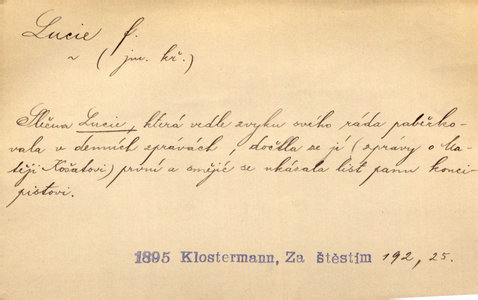 Lucie f.
~ (jm. kř.)
Slečna Lucie, která vedle zvyku svého ráda paběrko-
vala v denních zprávách, dočtla se jí (zprávy o Ma-
těji Košatovi) první a smějíc se ukázala list panu konci-
pistovi.
1895 Klostermann, Za štěstím 192, 25.